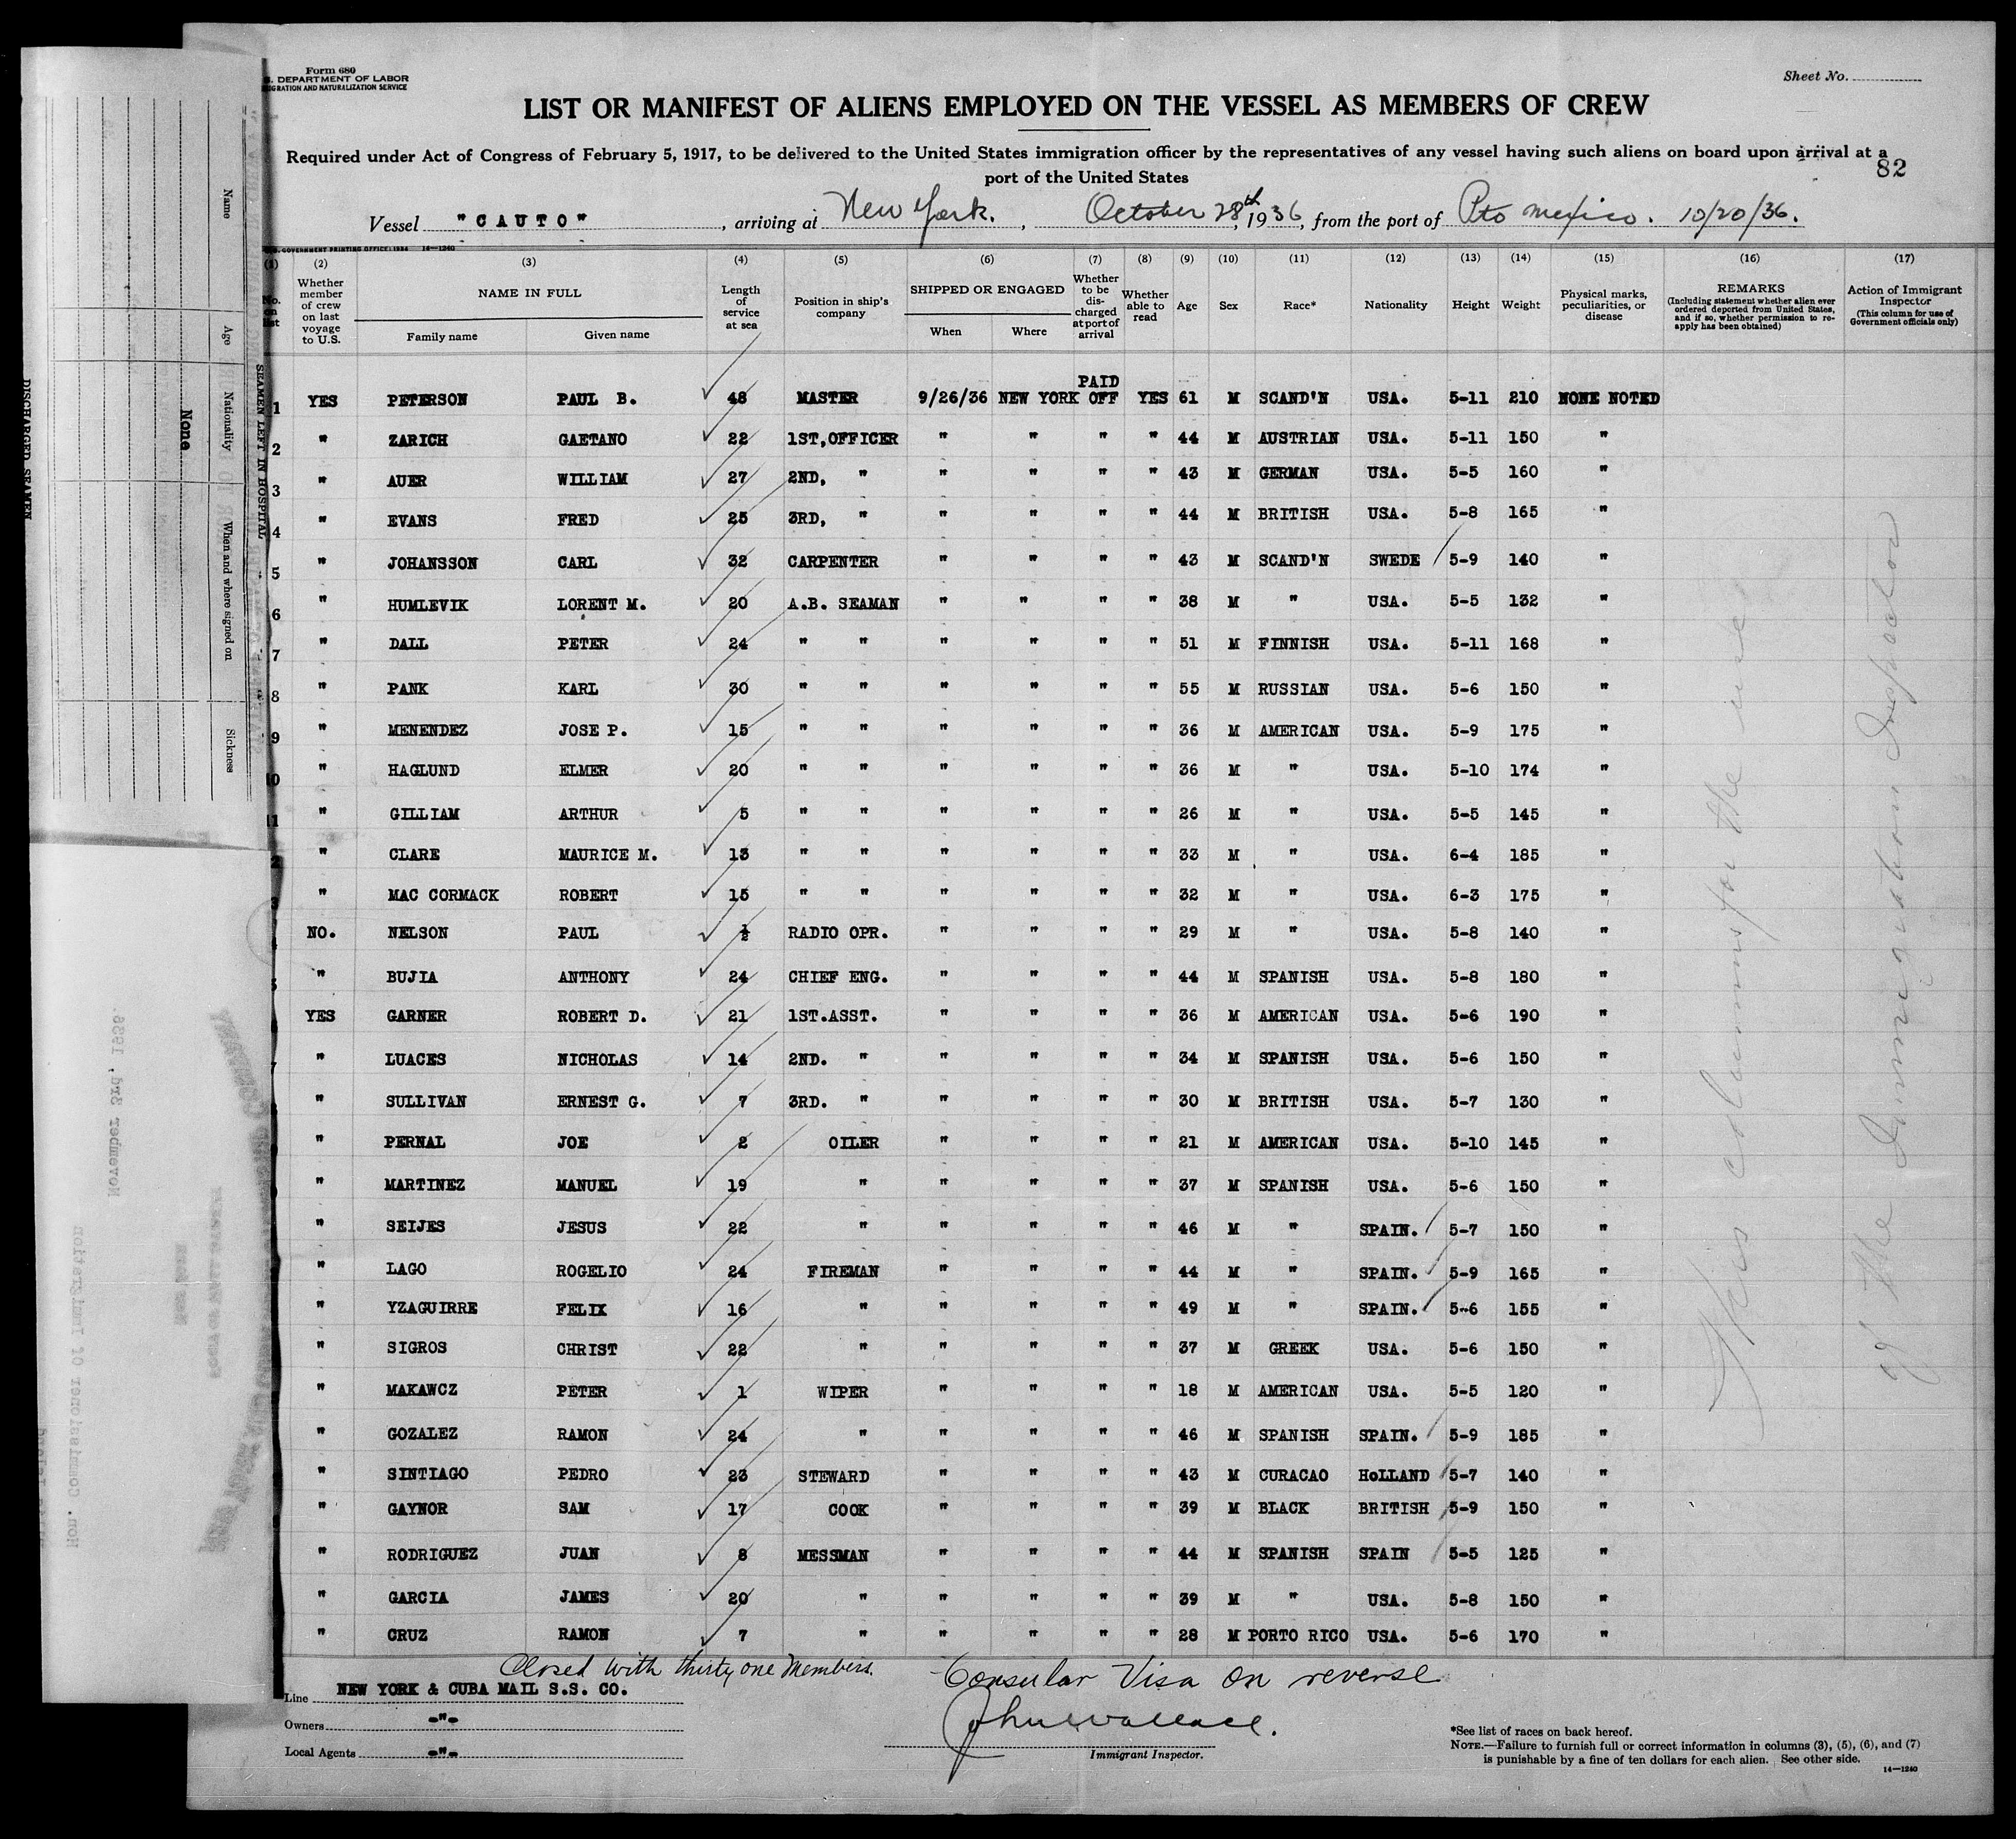 Form 680
DEPARTMENT OF LABOR
IMMIGRATION AND NATURALIZATION SERVICE
Sheet No.
LIST OR MANIFEST OF ALIENS EMPLOYED ON THE VESSEL AS MEMBERS OF CREW
Required under Act of Congress of February 5, 1917, to be delivered to the United States immigration officer by the representatives of any vessel having such aliens on board upon arrival at a
port of the United States
82
Vessel "CAUTO", arriving at New York., October 28th, 1936, from the port of Pto mexico. 10/20/36.
GOVERNMENT PRINTING OFFICE: 1934 14—1240
(1) (2) (3) (4) (5) (6) (7) (8) (9) (10) (11) (12) (13) (14) (15) (16) (17)
No. on list
Whether member of crew on last voyage to U.S.
NAME IN FULL
Family name Given name
Length of service at sea
Position in ship's company
SHIPPED OR ENGAGED
When Where
Whether to be discharged at port of arrival
Whether able to read
Age
Sex
Race*
Nationality
Height
Weight
Physical marks, peculiarities, or disease
REMARKS
(Including statement whether alien ever ordered deported from United States, and if so, whether permission to reapply has been obtained)
Action of Immigrant Inspector
(This column for use of Government officials only)
1 YES PETERSON PAUL B. 48 MASTER 9/26/36 NEW YORK PAID OFF YES 61 M SCAND'N USA. 5-11 210 NONE NOTED
2 " ZARICH GAETANO 22 1ST,OFFICER " " " " 44 M AUSTRIAN USA. 5-11 150 "
3 " AUER WILLIAM 27 2ND, " " " " " 43 M GERMAN USA. 5-5 160 "
4 " EVANS FRED 25 3RD, " " " " " 44 M BRITISH USA. 5-8 165 "
5 " JOHANSSON CARL 32 CARPENTER " " " " 43 M SCAND'N SWEDE 5-9 140 "
6 " HUMLEVIK LORENT M. 20 A.B. SEAMAN " " " " 38 M " USA. 5-5 132 "
7 " DALL PETER 24 " " " " " " 51 M FINNISH USA. 5-11 168 "
8 " PANK KARL 30 " " " " " " 55 M RUSSIAN USA. 5-6 150 "
9 " MENENDEZ JOSE P. 15 " " " " " " 36 M AMERICAN USA. 5-9 175 "
10 " HAGLUND ELMER 20 " " " " " " 36 M " USA. 5-10 174 "
11 " GILLIAM ARTHUR 5 " " " " " " 26 M " USA. 5-5 145 "
2 " CLARE MAURICE M. 13 " " " " " " 33 M " USA. 6-4 185 "
3 " MAC CORMACK ROBERT 15 " " " " " " 32 M " USA. 6-3 175 "
NO. NELSON PAUL ½ RADIO OPR. " " " " 29 M " USA. 5-8 140 "
" BUJIA ANTHONY 24 CHIEF ENG. " " " " 44 M SPANISH USA. 5-8 180 "
YES GARNER ROBERT D. 21 1ST.ASST. " " " " 36 M AMERICAN USA. 5-6 190 "
" LUACES NICHOLAS 14 2ND. " " " " " 34 M SPANISH USA. 5-6 150 "
" SULLIVAN ERNEST G. 7 3RD. " " " " " 30 M BRITISH USA. 5-7 130 "
" PERNAL JOE 2 OILER " " " " 21 M AMERICAN USA. 5-10 145 "
" MARTINEZ MANUEL 19 " " " " " 37 M SPANISH USA. 5-6 150 "
" SEIJES JESUS 22 " " " " " 46 M " SPAIN. 5-7 150 "
" LAGO ROGELIO 24 FIREMAN " " " " 44 M " SPAIN. 5-9 165 "
" YZAGUIRRE FELIX 16 " " " " " 49 M " SPAIN. 5-6 155 "
" SIGROS CHRIST 22 " " " " " 37 M GREEK USA. 5-6 150 "
" MAKAWCZ PETER 1 WIPER " " " " 18 M AMERICAN USA. 5-5 120 "
" GOZALEZ RAMON 24 " " " " " 46 M SPANISH SPAIN. 5-9 185 "
" SINTIAGO PEDRO 23 STEWARD " " " " 43 M CURACAO HoLLAND 5-7 140 "
" GAYNOR SAM 17 COOK " " " " 39 M BLACK BRITISH 5-9 150 "
" RODRIGUEZ JUAN 8 MESSMAN " " " " 44 M SPANISH SPAIN 5-5 125 "
" GARCIA JAMES 20 " " " " " 39 M " USA. 5-8 150 "
" CRUZ RAMON 7 " " " " " 28 M PORTO RICO USA. 5-6 170 "
This columns for the use
of the Immigration Inspector
Closed with thirty one Members.
Consular Visa on reverse
Line NEW YORK & CUBA MAIL S.S. CO.
Owners -"-
Local Agents -"-
John Wallace.
Immigrant Inspector.
*See list of races on back hereof.
NOTE.—Failure to furnish full or correct information in columns (3), (5), (6), and (7)
is punishable by a fine of ten dollars for each alien. See other side.
14—1240
DISCHARGED SEAMEN
None
SEAMEN LEFT IN HOSPITAL
Name
Age
Nationality
When and where signed on
Sickness
November 3rd, 1936.
Hon. Commissioner of Immigration